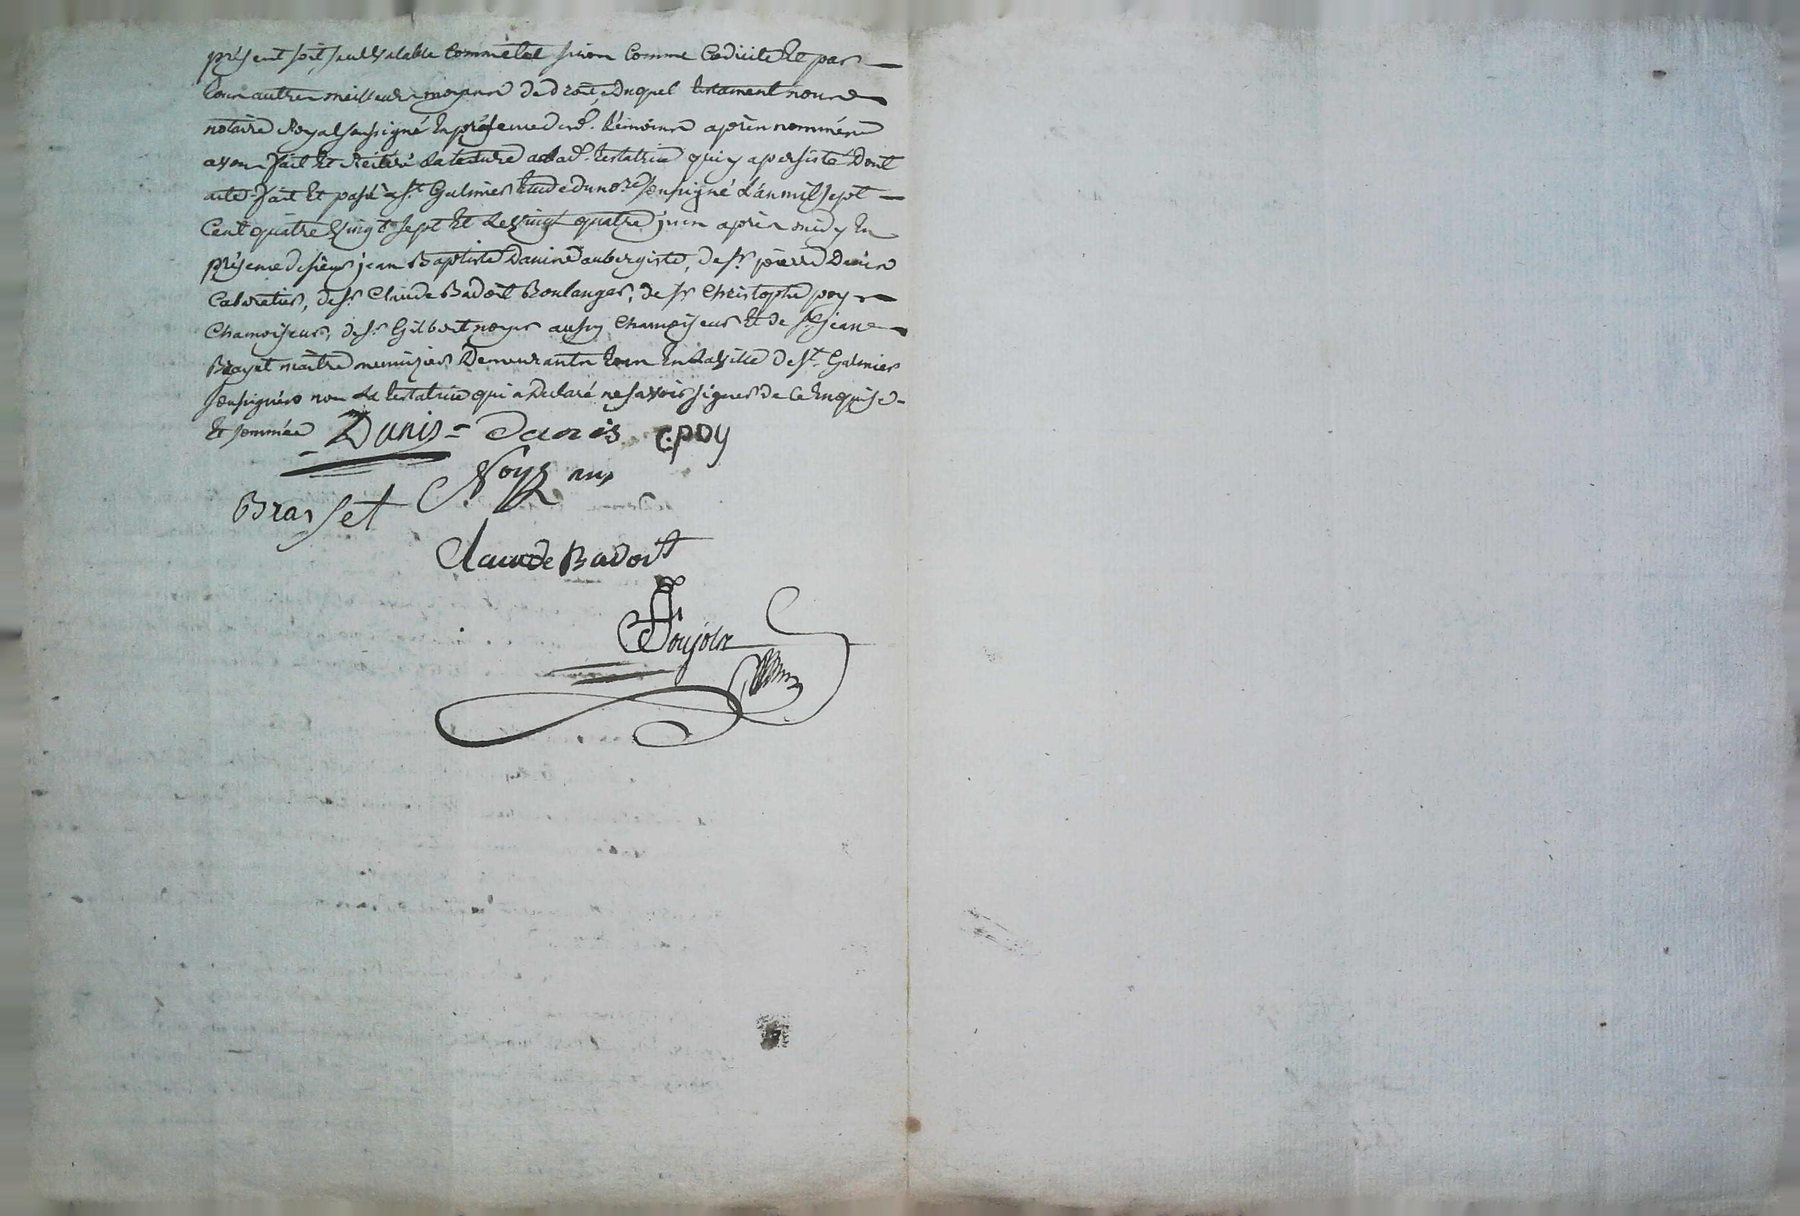 présent soit seul valable comme tel sinon comme Codicile Et par
tous autres meilleurs moyens de droit, Duquel testament nous
notaire Royal soussigné En présence des témoins après nommés
avons fait Et Réitéré la lecture a lad. testatrice qui y a persisté Dont
acte fait Et passé a St. Galmier Etude du nore. soussigné L'an mil sept
Cent quatre Vingt sept Et le Vingt quatre juin après midy En
présence de sieurs jean Baptiste Danis aubergiste, de Sr. pierre Danis
Cabaretier, de Sr. Claude Badoit Boulanger, de Sr Christophe poy
Chamoiseur, de Sr. Gilbert noyer aussy Chamoiseur Et de Sr. jean
Brasset maitre menuisier Demeurants tous En la Ville de St. Galmier
soussignés non La testatrice qui a Déclaré ne savoir signer de Ce Enquise
Et sommée Danis = Danis C:poy
Noyer
Brasset
Claude Badoit
Poujola